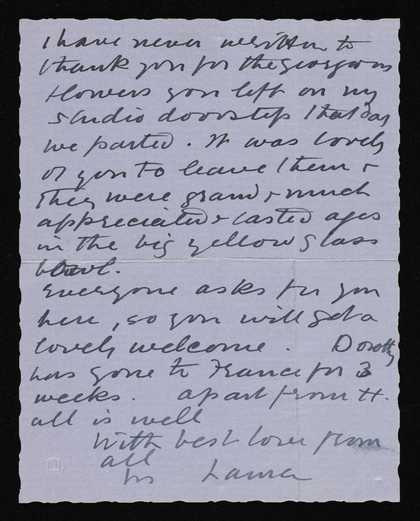 I have never written to
thank you for the gorgeous
flowers you left on my
studio doorstep that day
we parted. It was lovely
of you to leave them &
they were grand & much
appreciated & lasted ages
in the big yellow glass
bowl.
Everyone asks for you
here, so you will get a
lovely welcome. Dorothy
has gone to France for 3
weeks. apart from H.
all is well
With best love from
all
Laura